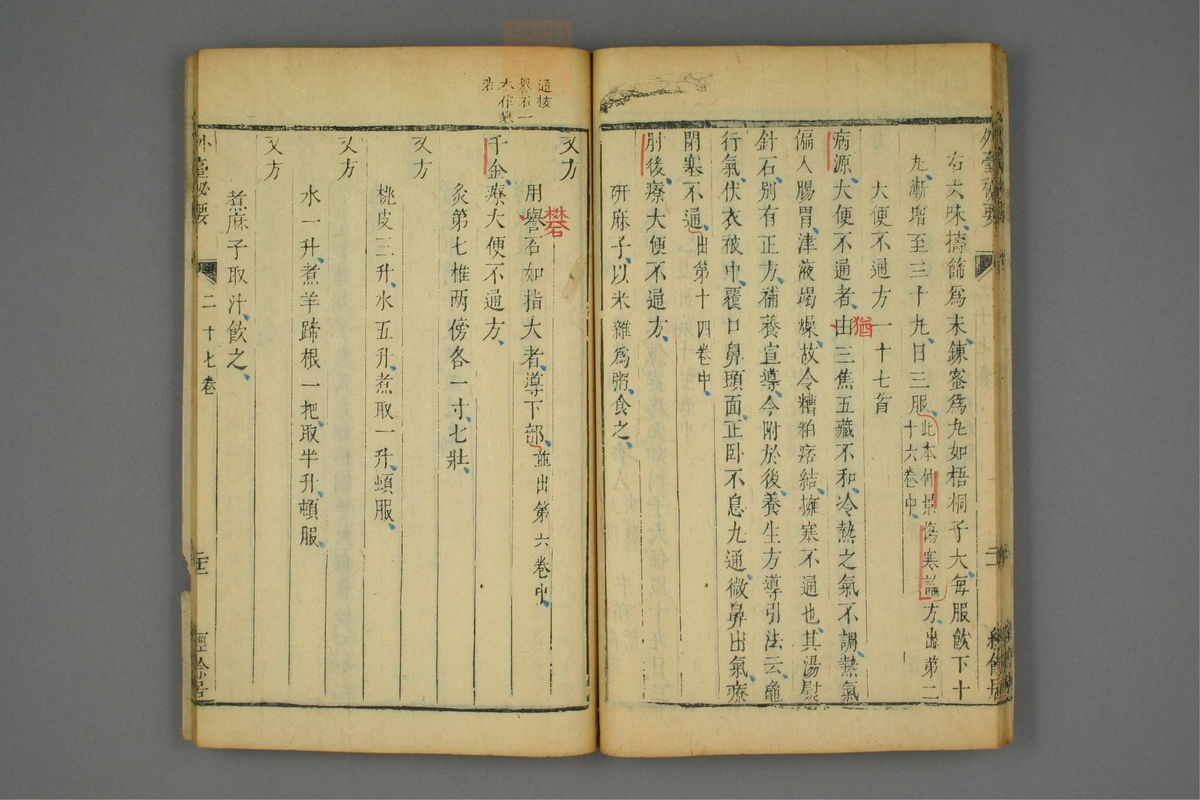 外臺秘要
右六味擣篩爲末鍊蜜爲丸如梧桐子大每服飲下十
丸漸增至三十丸日三服此本仲景傷寒論方出第二
十六卷中
大便不通方一十七首
病源大便不通者由三焦五藏不和冷熱之氣不調熱氣
猶
偏入腸胃津液竭燥故令糟粕痞結擁塞不通也其湯熨
針石別有正方補養宣導今附於後養生方導引法云龜
行氣伏衣被中覆口鼻頭面正卧不息九通微鼻出氣療
閉塞不通出第十四卷中
肘後療大便不通方
研麻子以米雜爲粥食之
通按
礜石一
本作礬
石
又方
礬
用礜石如指大者導下部並出第六卷中
千金療大便不通方
灸第七椎两傍各一寸七壯
又方
桃皮三升水五升煮取一升頓服
又方
水一升煮羊蹄根一把取半升頓服
又方
煮麻子取汁飲之
外臺秘要
二十七卷
二十一
經餘居